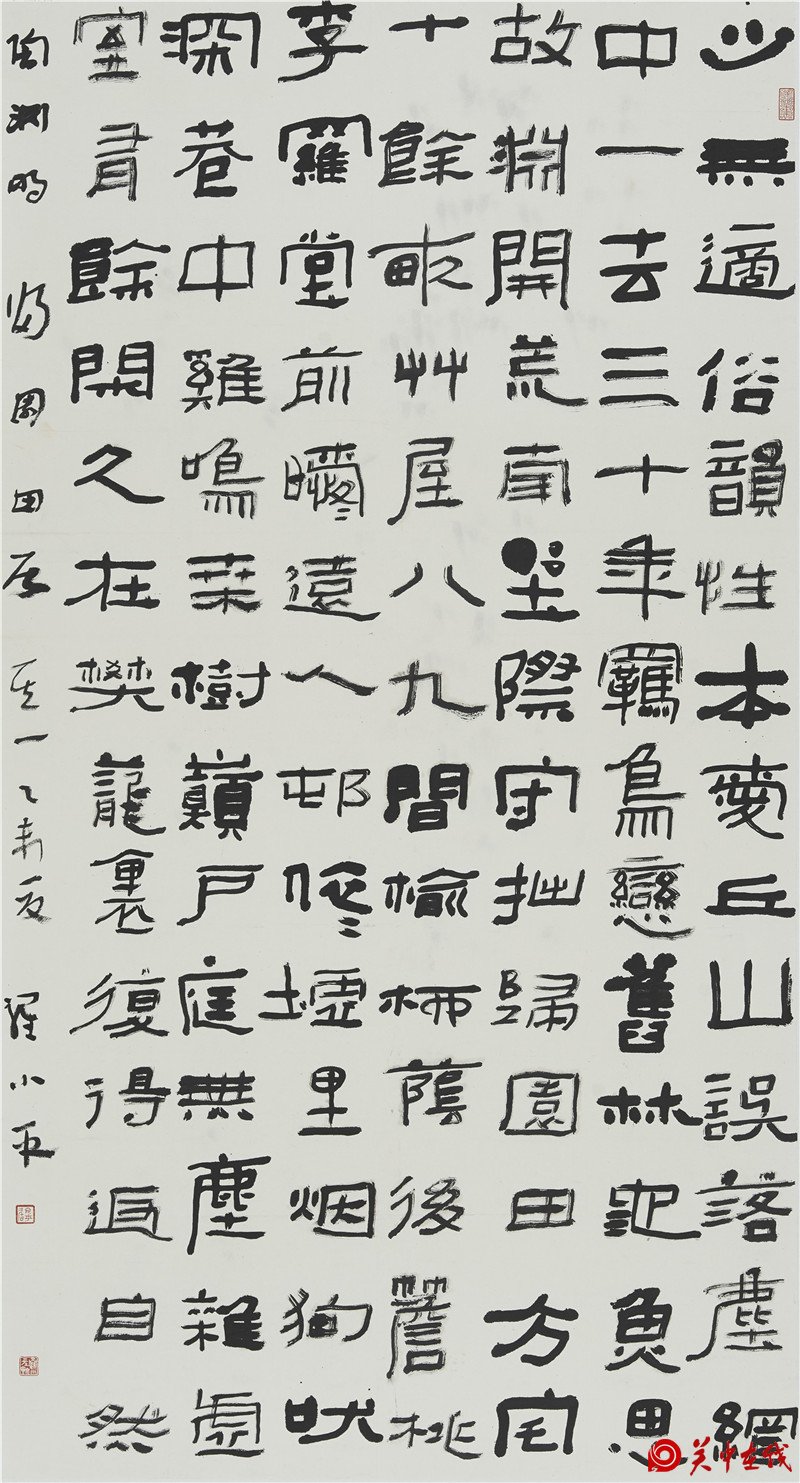 少無適俗韻性本愛丘山誤落塵網
中一去三十年羈鳥戀舊林池魚思
故淵開荒南埜際守拙歸園田方宅
十餘畝艸屋八九間榆柳蔭後簷桃
李羅堂前曖〻遠人邨依〻墟里烟狗吠
深巷中雞鳴桒樹巔戶庭無塵雜虛
室有餘閒久在樊籠裏復得返自然
陶渊明 归園田居 其一 乙未夏 羅小平
关中在线